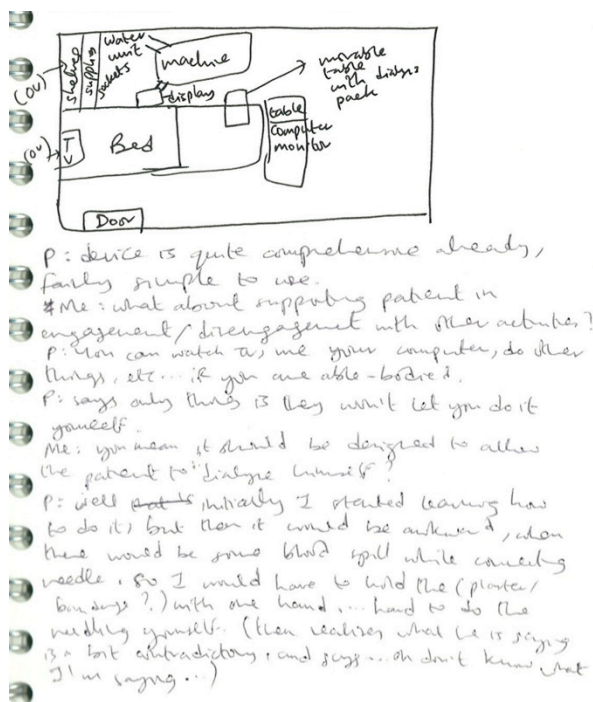 shelves
supplies
sockets
water
unit
machine
displays
(OU)
(OU)
TV
Bed
movable
table
with dialysis
pack
table
computer
monitor
Door
P: device is quite comprehensive already,
fairly simple to use.
*Me: what about supporting patient in
engagement/disengagement with other activities?
P: You can watch TV, use your computer, do other
things, etc... if you are able-bodied.
P: says only things is they won't let you do it
yourself.
Me: you mean it should be designed to allow
the patient to dialyse himself?
P: well initially I started learning how
to do it, but then it would be awkward, when
there would be some blood spill while connecting
needle. so I would have to hold the (plaster/
bandage?) with one hand.... hard to do the
needling yourself. (then realises what he is saying
is a bit contradictory, and says... oh don't know what
I'm saying...)